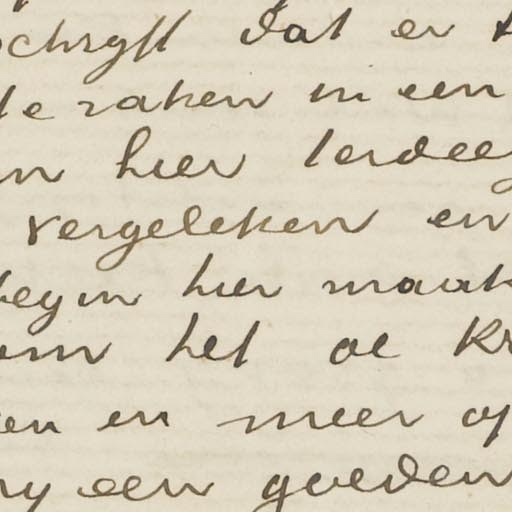 schryft dat er
te raken in een
n hier terdeeg
vergeleken en
begin hier maak
om het al kr
en en meer op
ny een goeden